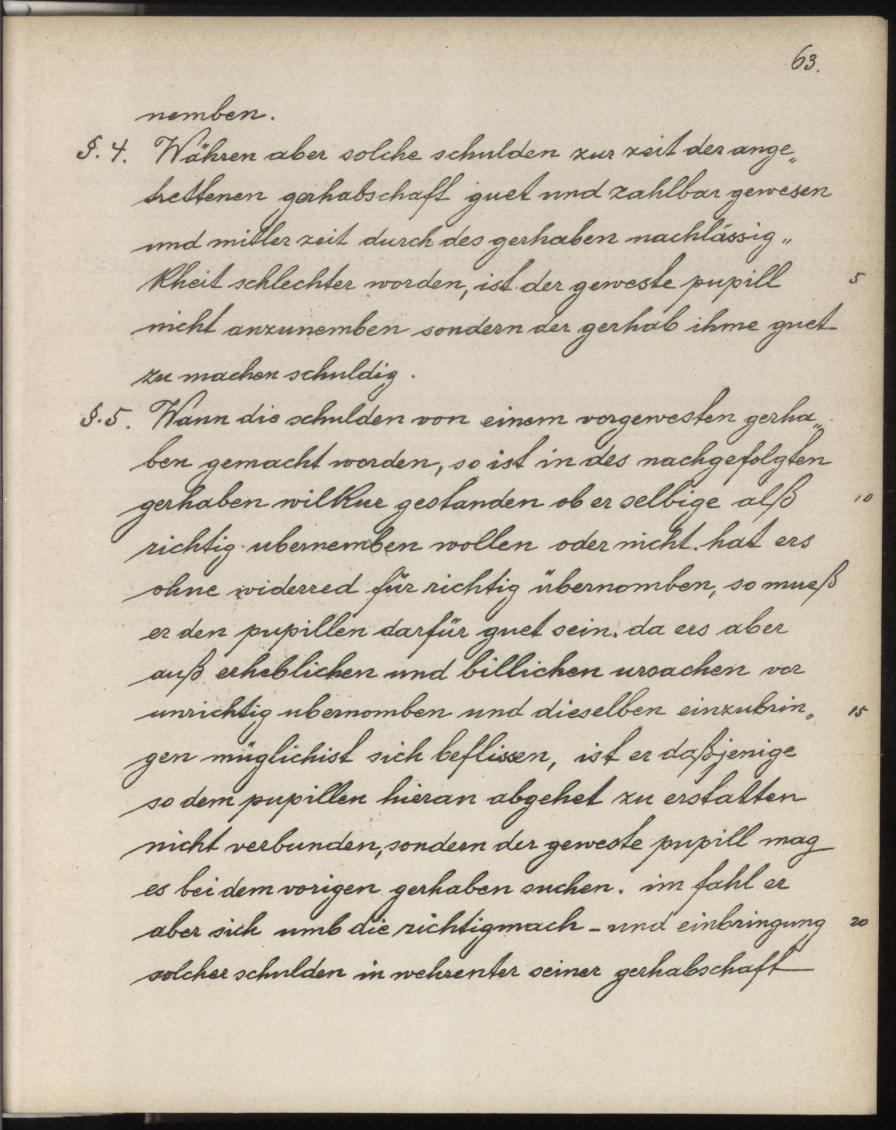 63.
nemben.
§. 4. Währen aber solche schulden zur zeit der ange„
trettenen gerhabschaft guet und zahlbar gewesen
und mitler zeit durch des gerhaben nachlässig„
kheit schlechter worden, ist der geweste pupill 5
nicht anzunemben sondern der gerhab ihme guet
zu machen schuldig.
§. 5. Wann die schulden von einem vorgewesten gerha„
ben gemacht worden, so ist in des nachgefolgten
gerhaben wilkur gestanden ob er selbige alß 10
richtig ubernemben wollen oder nicht. hat ers
ohne widerred für richtig übernomben, so mueß
er den pupillen darfür guet sein. da ers aber
auß erheblichen und billichen ursachen vor
unrichtig ubernomben und dieselben einzubrin„ 15
gen müglichist sich beflissen, ist er daßjenige
so dem pupillen hieran abgehet zu erstatten
nicht verbunden, sondern der geweste pupill mag
es bei dem vorigen gerhaben suchen. im fahl er
aber sich umb die richtigmach- und einbringung 20
solcher schulden in wehrenter seiner gerhabschaft